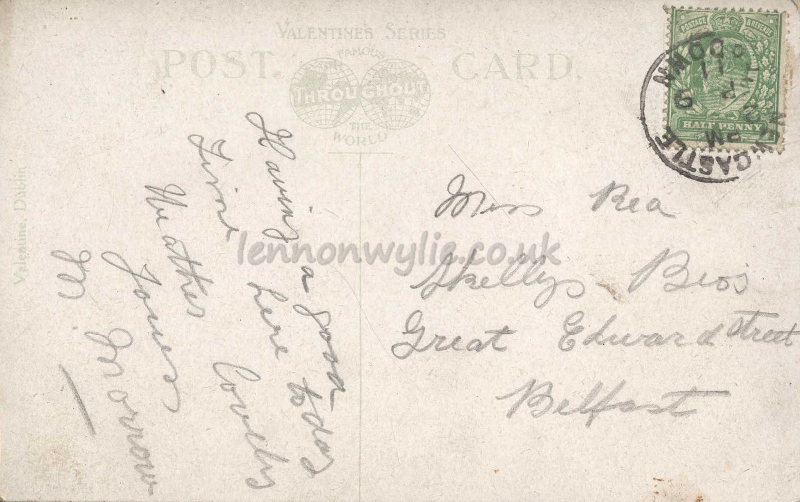 VALENTINE'S SERIES
FAMOUS
POST CARD.
THROUGHOUT
THE
WORLD
Valentine, Dublin
Having a good
time here today
Lovely
Weather
Yours
M. Morrow
Miss Rea
Skellys Bros
Great Edward Street
Belfast
POSTAGE REVENUE
HALF PENNY
NEWCASTLE
PM
11
CO DOWN
lennonwylie.co.uk